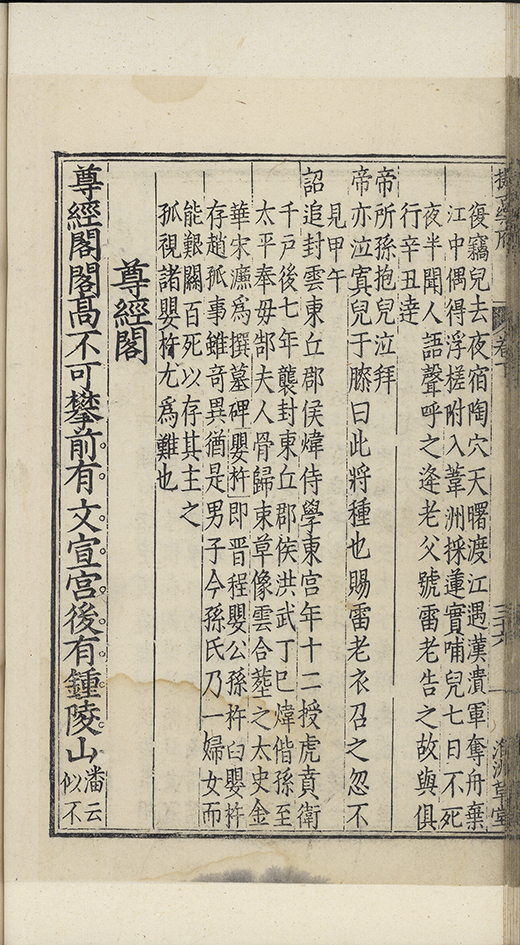 復竊兒去夜宿陶穴天曙渡江遇漢潰軍奪舟棄
江中偶得浮槎附入葦洲採蓮實哺兒七日不死
夜半聞人語聲呼之逄老父號雷老告之故與俱
行辛丑達
帝所孫抱兒泣拜
帝亦泣寘兒于膝曰此將種也賜雷老衣召之忽不
見甲午
詔追封雲東丘郡侯煒侍學東宮年十二授虎賁衛
千戸後七年襲封東丘郡侯洪武丁巳煒偕孫至
太平奉毋郜夫人骨歸束草像雲合塟之太史金
華宋濂爲撰墓碑嬰杵即晋程嬰公孫杵臼嬰杵
存趙孤事雖竒異猶是男子今孫氏乃一婦女而
能艱關百死以存其主之
孤視諸嬰杵尤爲難也
尊經閣
尊經閣閣高不可攀前有文宣宮後有鍾陵山潘云
似不
卷下
三十六